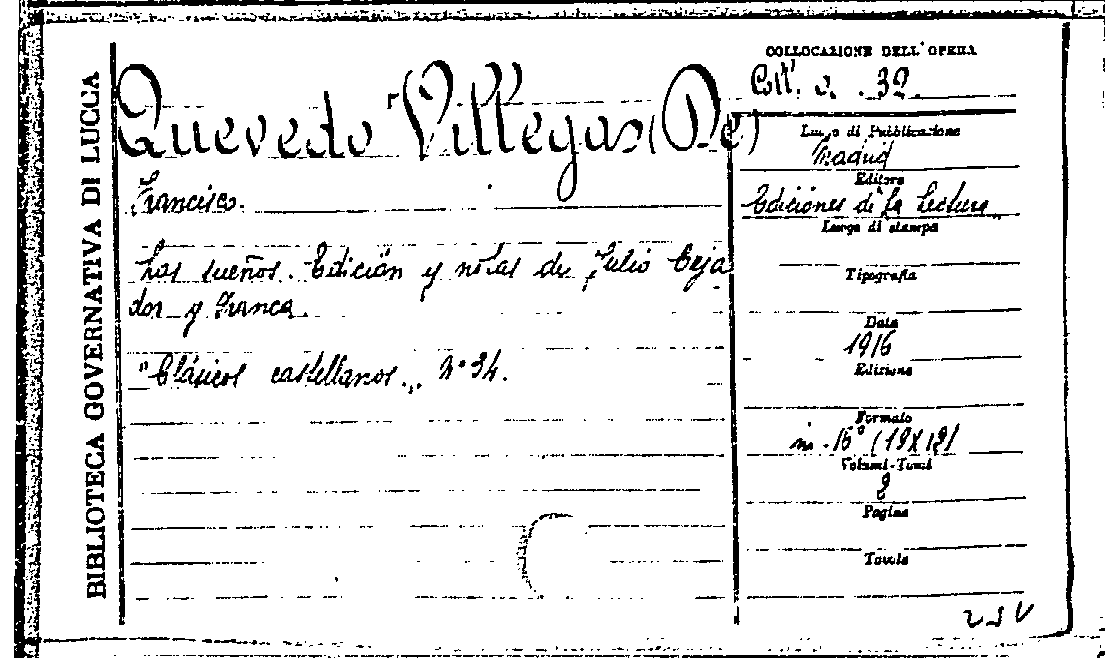 BIBLIOTECA GOVERNATIVA DI LUCCA
Quevedo Villegas (De)
Francisco.
Los sueños. Edición y notas de Julio Ceja
dor y Franca.
"Clásicos castellanos„ Nº 34.
COLLOCAZIONE DELL'OPERA
Coll. o. 32.
Luogo di Pubblicazione
Madrid
Editore
Ediciones de "La Lectura„
Luogo di stampa
Tipografia
Data
1916
Edizione
Formato
in-16º (19X12)
Volumi-Tomi
2
Pagine
Tavole